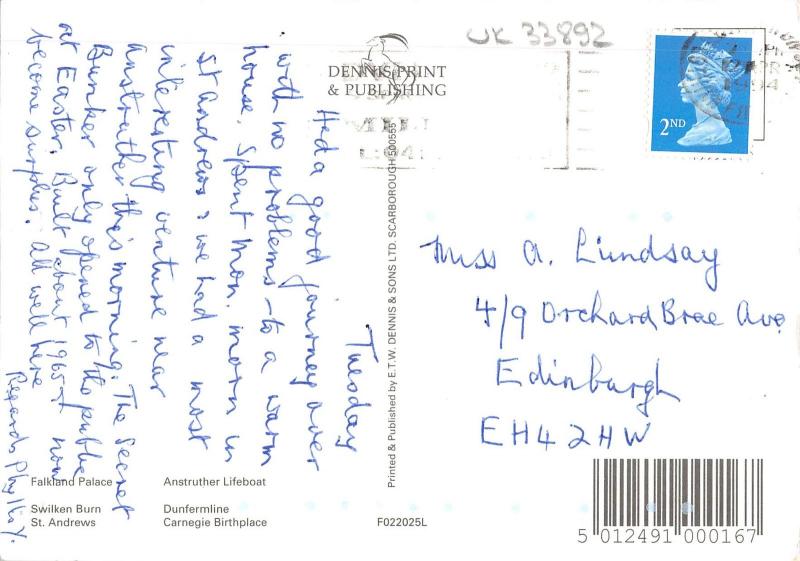 UK 33892
DENNIS PRINT
& PUBLISHING
2ND
1994
Tuesday
Had a good journey over
with no problems - to a warm
house. Spent Mon. morn in
St Andrews & we had a most
interesting venture near
Anstruther this morning. The Secret
Bunker only opened to the public
at Easter. Built about 1965 & now
become surplus. All well here
Regards Phyl
Miss A. Lindsay
4/9 Orchard Brae Ave
Edinburgh
EH4 2HW
Printed & Published by E.T.W. DENNIS & SONS LTD. SCARBOROUGH 500555
Falkland Palace
Anstruther Lifeboat
Swilken Burn
St. Andrews
Dunfermline
Carnegie Birthplace
F022025L
5 012491 000167